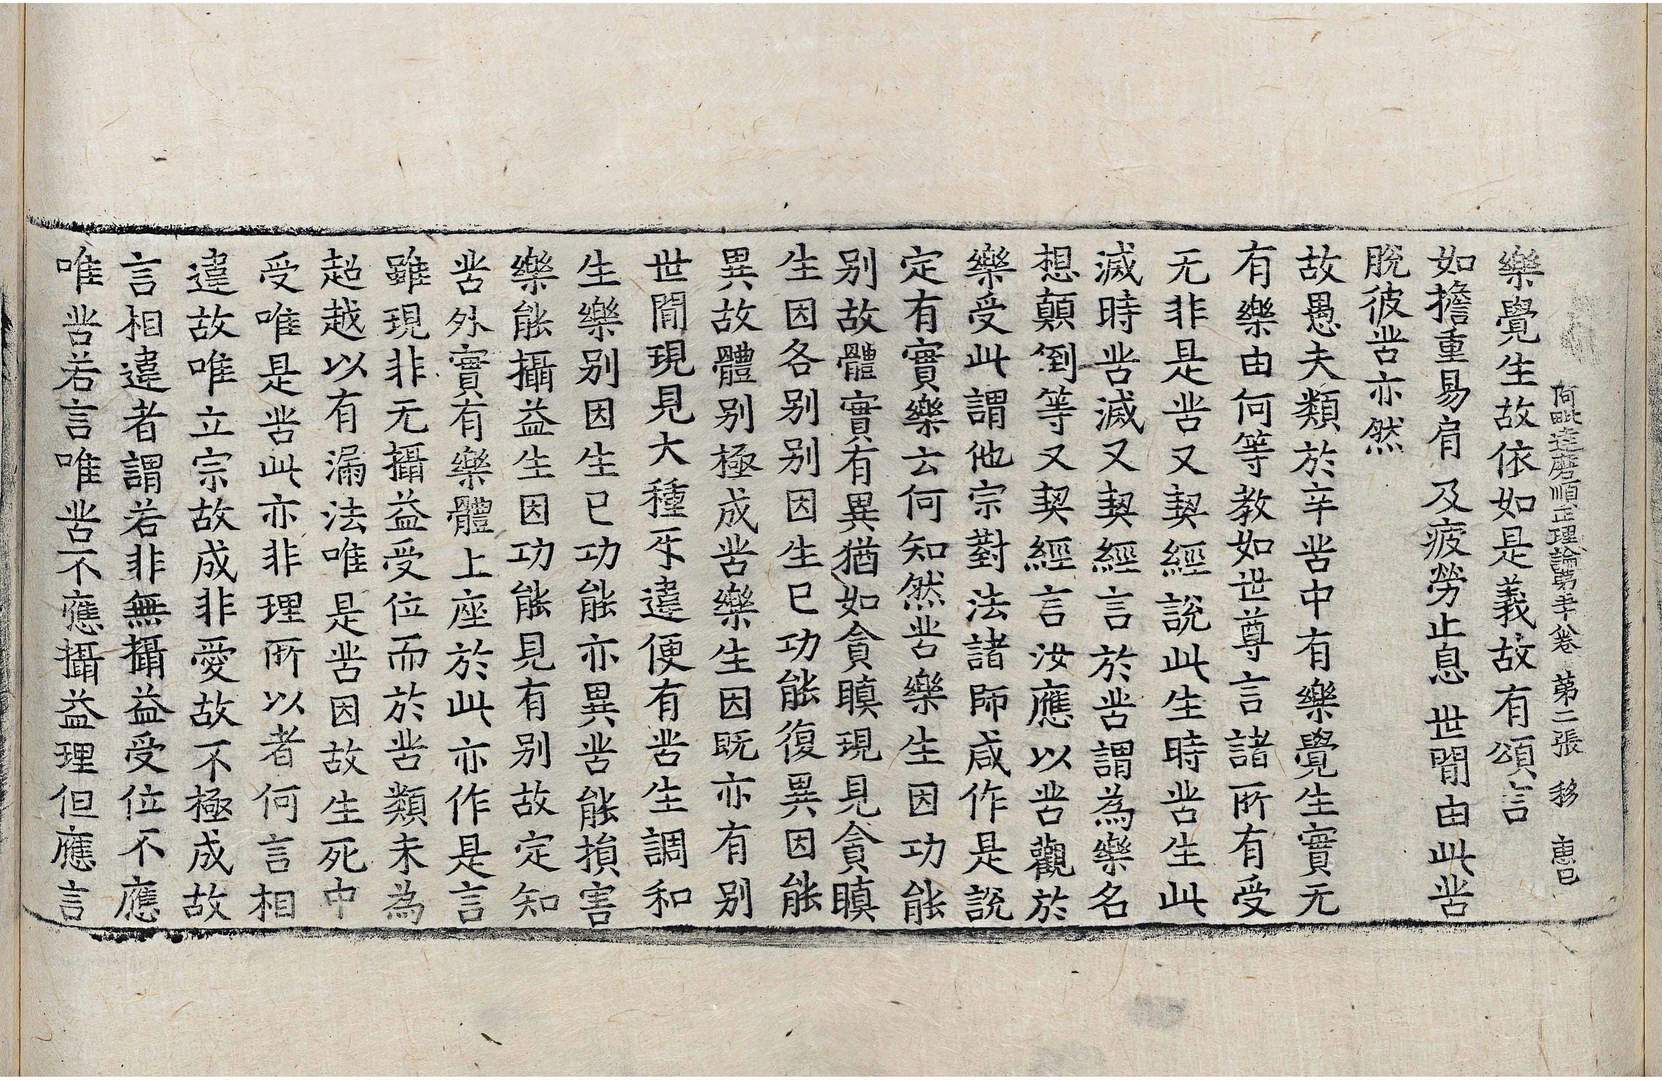 阿毗達磨順正理論第五十卷 第二張 移 惠巳
樂覺生故依如是義故有頌言
如擔重易肩 及疲勞止息 世間由此苦
脫彼苦亦然
故愚夫類於辛苦中有樂覺生實无
有樂由何等教如世尊言諸所有受
无非是苦又契經說此生時苦生此
滅時苦滅又契經言於苦謂為樂名
想顛倒等又契經言汝應以苦觀於
樂受此謂他宗對法諸師咸作是說
定有實樂云何知然苦樂生因功能
別故體實有異猶如貪瞋現見貪瞋
生因各別別因生已功能復異因能
異故體別極成苦樂生因既亦有別
世間現見大種乖違便有苦生調和
生樂別因生已功能亦異苦能損害
樂能攝益生因功能見有別故定知
苦外實有樂體上座於此亦作是言
雖現非无攝益受位而於苦類未為
超越以有漏法唯是苦因故生死中
受唯是苦此亦非理所以者何言相
違故唯立宗故成非愛故不極成故
言相違者謂若非無攝益受位不應
唯苦若言唯苦不應攝益理但應言